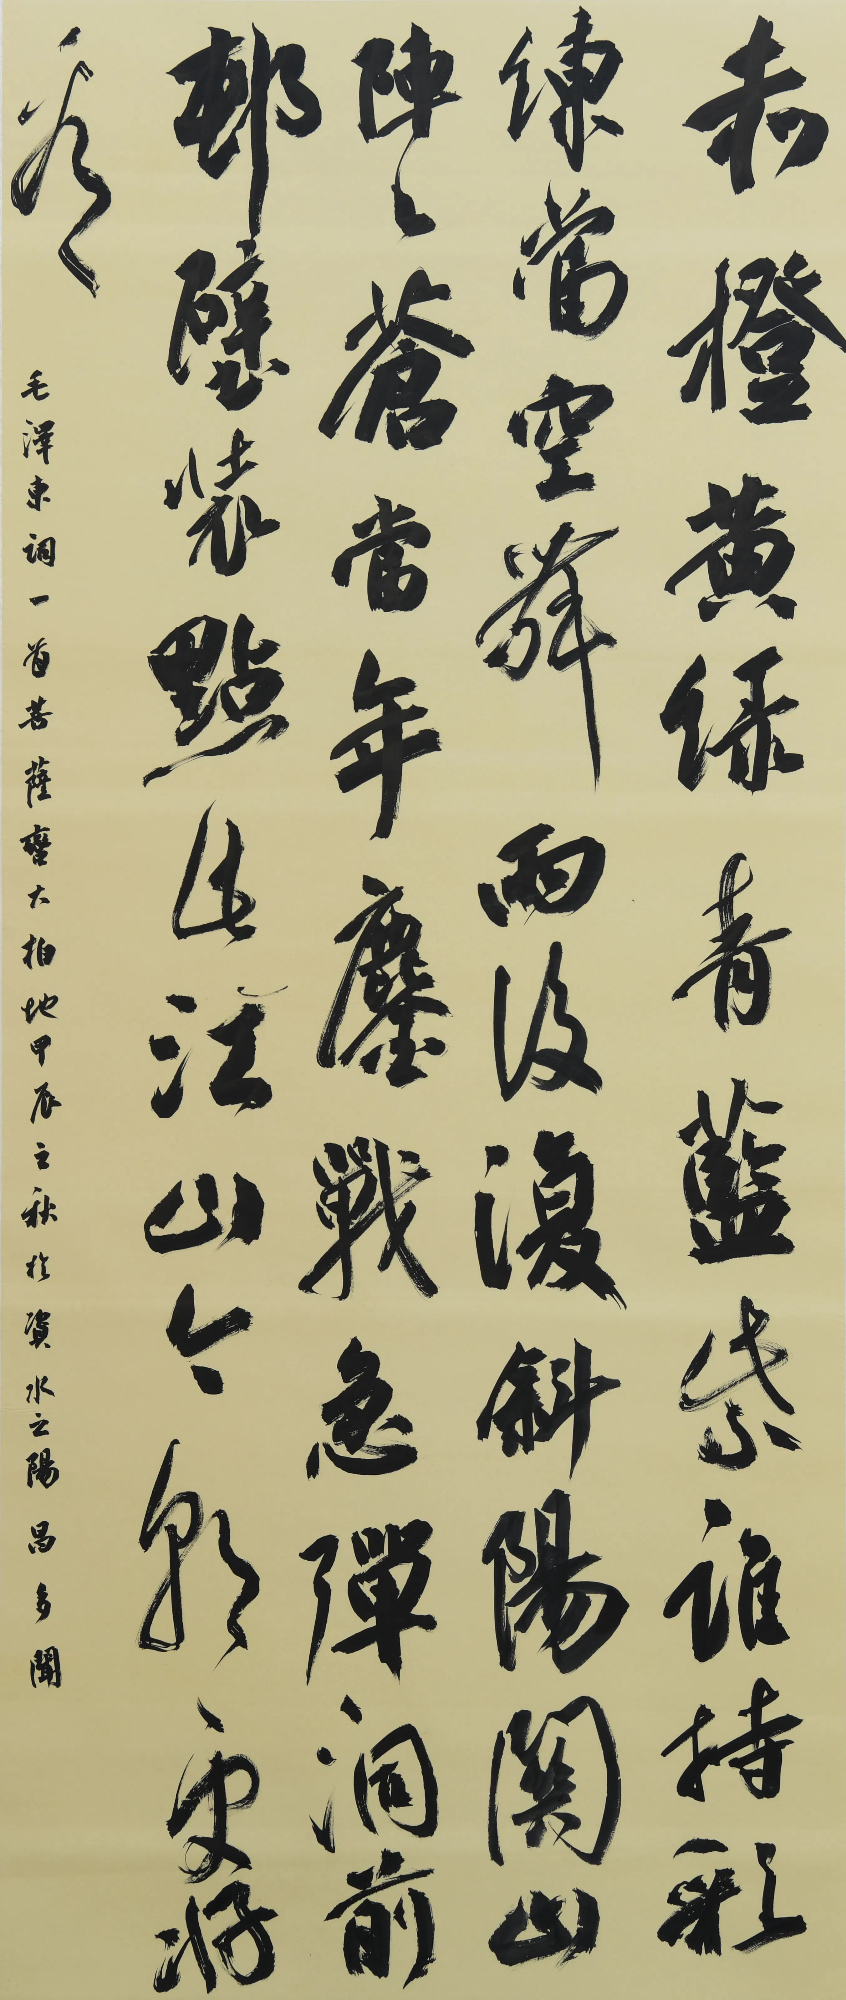 赤橙黄緑青藍紫誰持彩
練當空舞雨後復斜陽關山
陣々蒼當年鏖戰急彈洞前
邨壁裝點此江山今朝更好
看
毛澤東詞一首菩薩蠻大柏地甲辰之秋於資水之陽昌多聞